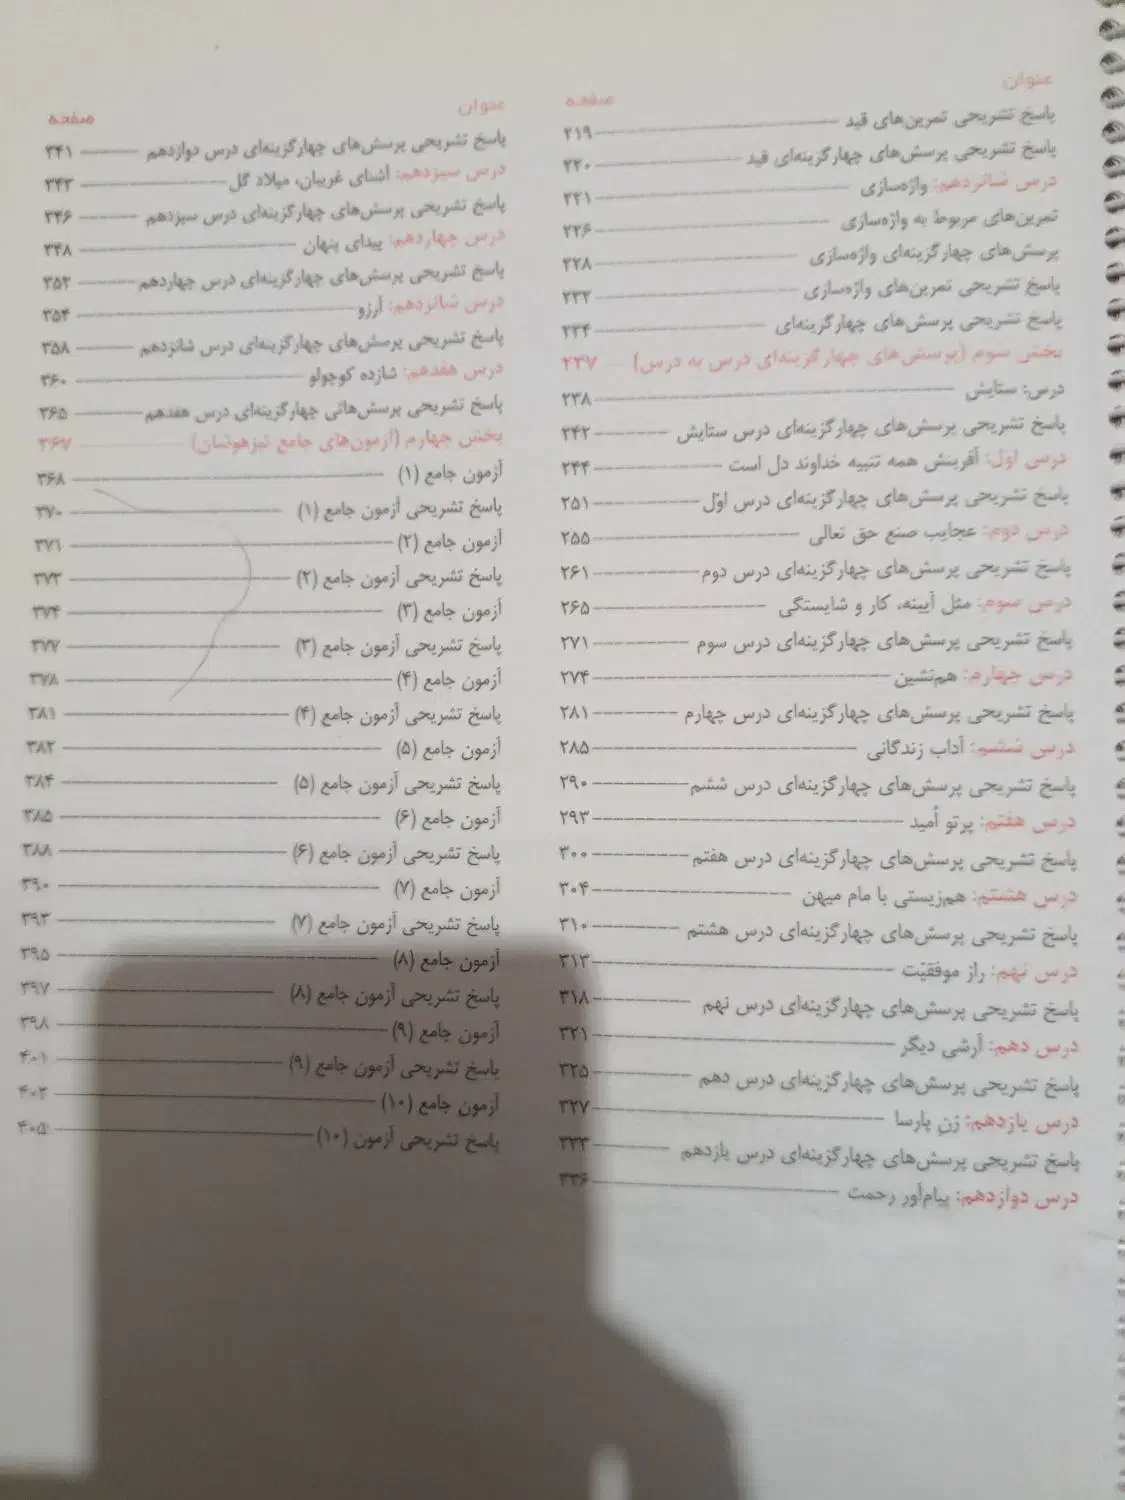 عنوان صفحه
پاسخ تشریحی تمرین‌های قید ۲۱۹
پاسخ تشریحی پرسش‌های چهارگزینه‌ای قید ۲۲۰
درس شانزدهم: واژه‌سازی ۲۲۱
تمرین‌های مربوط به واژه‌سازی ۲۲۶
پرسش‌های چهارگزینه‌ای واژه‌سازی ۲۲۸
پاسخ تشریحی تمرین‌های واژه‌سازی ۲۳۲
پاسخ تشریحی پرسش‌های چهارگزینه‌ای ۲۳۴
بخش سوم (پرسش‌های چهارگزینه‌ای درس به درس) ۲۳۷
درس: ستایش ۲۳۸
پاسخ تشریحی پرسش‌های چهارگزینه‌ای درس ستایش ۲۴۲
درس اول: آفرینش همه تنبیه خداوند دل است ۲۴۴
پاسخ تشریحی پرسش‌های چهارگزینه‌ای درس اوّل ۲۵۱
درس دوم: عجایب صنع حق تعالی ۲۵۵
پاسخ تشریحی پرسش‌های چهارگزینه‌ای درس دوم ۲۶۱
درس سوم: مثل آیینه، کار و شایستگی ۲۶۵
پاسخ تشریحی پرسش‌های چهارگزینه‌ای درس سوم ۲۷۱
درس چهارم: هم‌نشین ۲۷۴
پاسخ تشریحی پرسش‌های چهارگزینه‌ای درس چهارم ۲۸۱
درس ششم: آداب زندگانی ۲۸۵
پاسخ تشریحی پرسش‌های چهارگزینه‌ای درس ششم ۲۹۰
درس هفتم: پرتو اُمید ۲۹۳
پاسخ تشریحی پرسش‌های چهارگزینه‌ای درس هفتم ۳۰۰
درس هشتم: هم‌زیستی با مام میهن ۳۰۴
پاسخ تشریحی پرسش‌های چهارگزینه‌ای درس هشتم ۳۱۰
درس نهم: راز موفقیّت ۳۱۳
پاسخ تشریحی پرسش‌های چهارگزینه‌ای درس نهم ۳۱۸
درس دهم: آرشی دیگر ۳۲۱
پاسخ تشریحی پرسش‌های چهارگزینه‌ای درس دهم ۳۲۵
درس یازدهم: زنِ پارسا ۳۲۷
پاسخ تشریحی پرسش‌های چهارگزینه‌ای درس یازدهم ۳۳۳
درس دوازدهم: پیام‌آور رحمت ۳۳۶
عنوان صفحه
پاسخ تشریحی پرسش‌های چهارگزینه‌ای درس دوازدهم ۳۴۱
درس سیزدهم: آشنای غریبان، میلاد گل ۳۴۳
پاسخ تشریحی پرسش‌های چهارگزینه‌ای درس سیزدهم ۳۴۶
درس چهاردهم: پیدای پنهان ۳۴۸
پاسخ تشریحی پرسش‌های چهارگزینه‌ای درس چهاردهم ۳۵۲
درس شانزدهم: آرزو ۳۵۴
پاسخ تشریحی پرسش‌های چهارگزینه‌ای درس شانزدهم ۳۵۸
درس هفدهم: شازده کوچولو ۳۶۰
پاسخ تشریحی پرسش‌هاتی چهارگزینه‌ای درس هفدهم ۳۶۵
بخش چهارم (آزمون‌های جامع تیزهوشان) ۳۶۷
آزمون جامع (۱) ۳۶۸
پاسخ تشریحی آزمون جامع (۱) ۳۷۰
آزمون جامع (۲) ۳۷۱
پاسخ تشریحی آزمون جامع (۲) ۳۷۳
آزمون جامع (۳) ۳۷۴
پاسخ تشریحی آزمون جامع (۳) ۳۷۷
آزمون جامع (۴) ۳۷۸
پاسخ تشریحی آزمون جامع (۴) ۳۸۱
آزمون جامع (۵) ۳۸۲
پاسخ تشریحی آزمون جامع (۵) ۳۸۴
آزمون جامع (۶) ۳۸۵
پاسخ تشریحی آزمون جامع (۶) ۳۸۸
آزمون جامع (۷) ۳۹۰
پاسخ تشریحی آزمون جامع (۷) ۳۹۳
آزمون جامع (۸) ۳۹۵
پاسخ تشریحی آزمون جامع (۸) ۳۹۷
آزمون جامع (۹) ۳۹۸
پاسخ تشریحی آزمون جامع (۹) ۴۰۱
آزمون جامع (۱۰) ۴۰۳
پاسخ تشریحی آزمون (۱۰) ۴۰۵